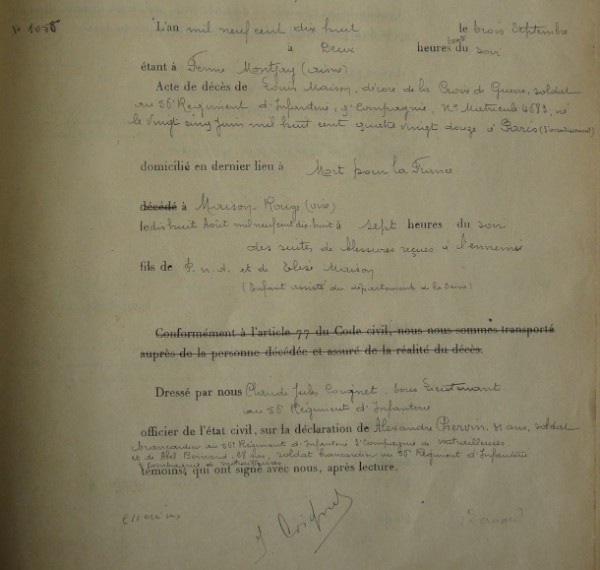 L'an mil neuf cent dix huit le trois Septembre
à Deux heures du soir
étant à Ferme Montjay (aisne)
Acte de décès de Louis Maison, décoré de la Croix de Guerre, soldat
au 56e Régiment d'Infanterie, Compagnie, No Matricule né
le vingt cinq Juin mil huit cent quatre vingt douze à Paris
domicilié en dernier lieu à Mort pour la France
décédé à Maison-Rouge (oise)
le dix huit Août mil neuf cent dix-huit à sept heures du soir
des suites de blessures reçues à l'ennemi
fils de P.n.d. et de Elise Maison
(Enfant assisté du département de la Seine)
Conformément à l'article 77 du Code civil, nous nous sommes transporté
auprès de la personne décédée et assuré de la réalité du décès.
Dressé par nous Claude Jules Coignet, Sous Lieutenant
au 56e Régiment d'Infanterie
officier de l'état civil, sur la déclaration de Alexandre 31 ans, soldat
brancardier au 56e Régiment d'Infanterie Compagnie de mitrailleuses
et de Abel Bernard, ans, soldat brancardier au 56e Régiment d'Infanterie
compagnie de mitrailleuses
témoins qui ont signé avec nous, après lecture.
J Coignet
Bernard